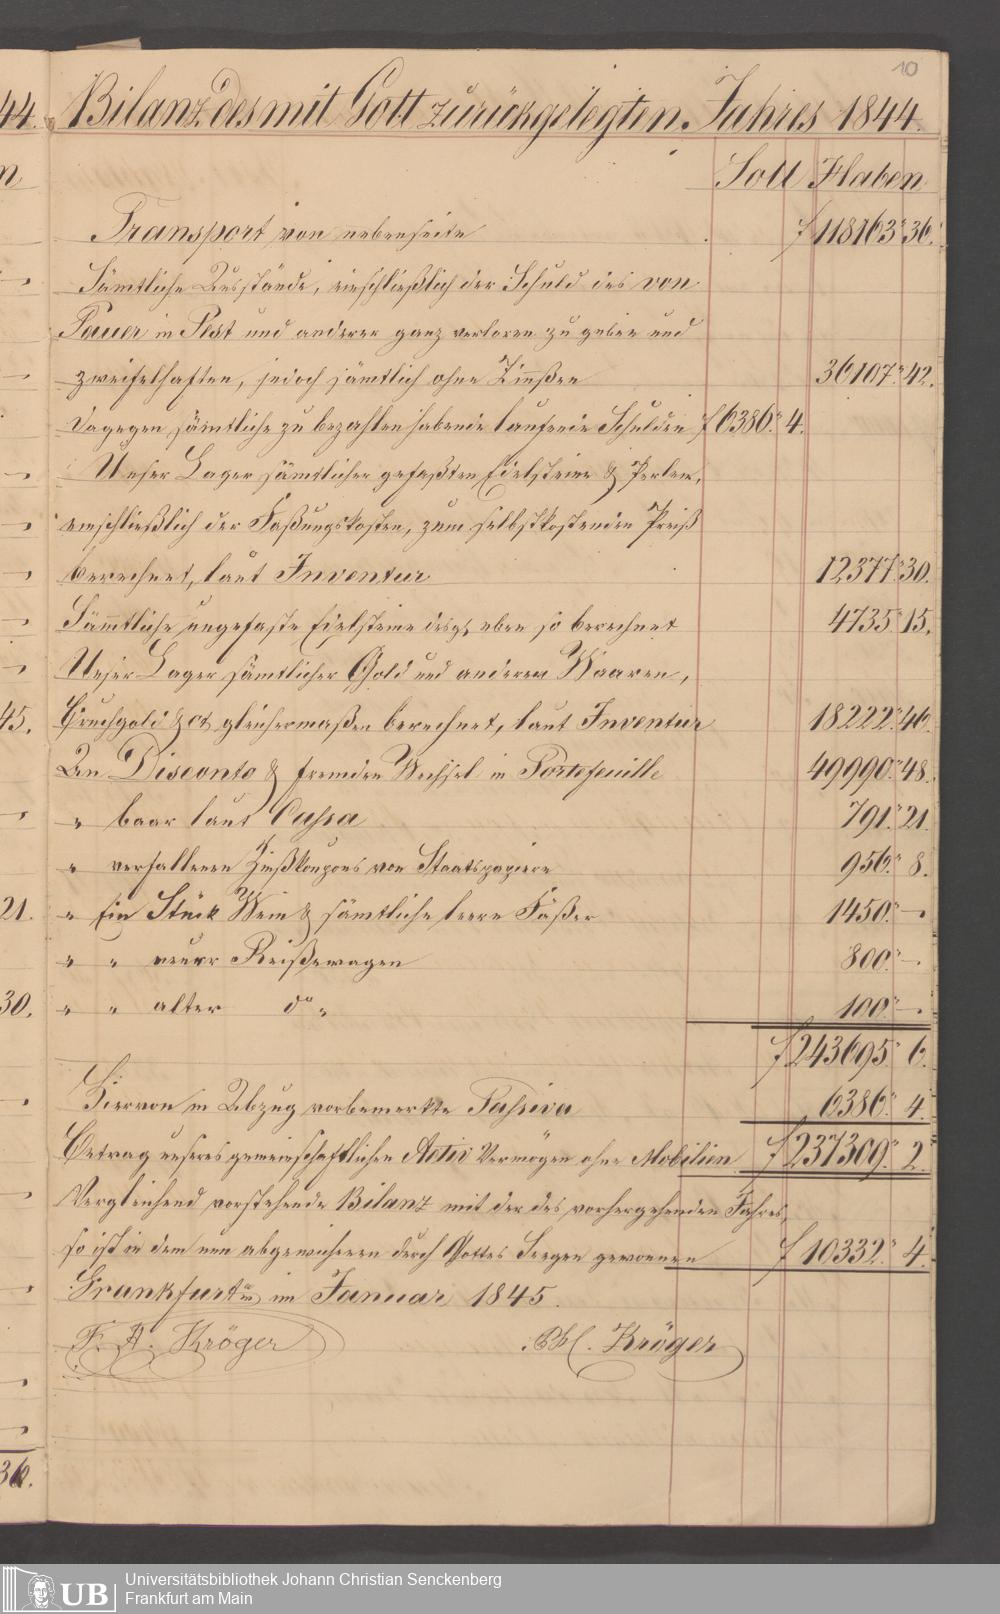 10
Bilanz des mit Gott zurückgelegten Jahres 1844.
Soll Haben
Transport von nebenseite f 118163 36.
Sämtliche Ausstände, einschließlich der Schuld des von
Pauer in Pest und anderer ganz verloren zu geben und
zweifelhaften, jedoch sämtlich ohne Zinßen 36107. 42.
Dagegen sämtliche zu bezahlen habende laufende Schulden f 6386. 4.
Unser Lager sämtlicher gefaßten Edelsteine & Perlen,
einschließlich der Faßungskosten, zum selbstkostenden Preiß
berechnet, laut Inventur 12377. 30.
Sämtliche ungefaste Edelsteine desgl. eben so berechnet 4735. 15.
Unser Lager sämtlicher Gold und anderen Waaren,
Bruchgold &ct. gleichermaßen berechnet, laut Inventur 18222. 46.
An Disconto & fremden Wechsel in Portefeuille 49990. 48.
" baar laut Cassa 791. 21.
" verfallenen Zinßkoupons von Staatspapiere 956. 8.
" Ein Stück Wein & sämtliche leere Fäßer 1450. —.
" " neuer Reißewagen 800. —.
" " alter do " 100. —.
f 243695. 6.
Hiervon in Abzug vorbemerkte Passiva 6386. 4.
Betrag unseres gemeinschaftlichen Activ Vermögen ohne Mobilien f 237309. 2.
Vergleichend vorstehende Bilanz mit der des vorhergehenden Jahres,
so ist in dem nun abgewichenen durch Gottes Seegen gewonnen f 10332. 4.
Frankfurt a/m im Januar 1845.
F. A. Kröger Kröger
44.
n
45.
21.
30.
36.
UB
Universitätsbibliothek Johann Christian Senckenberg
Frankfurt am Main